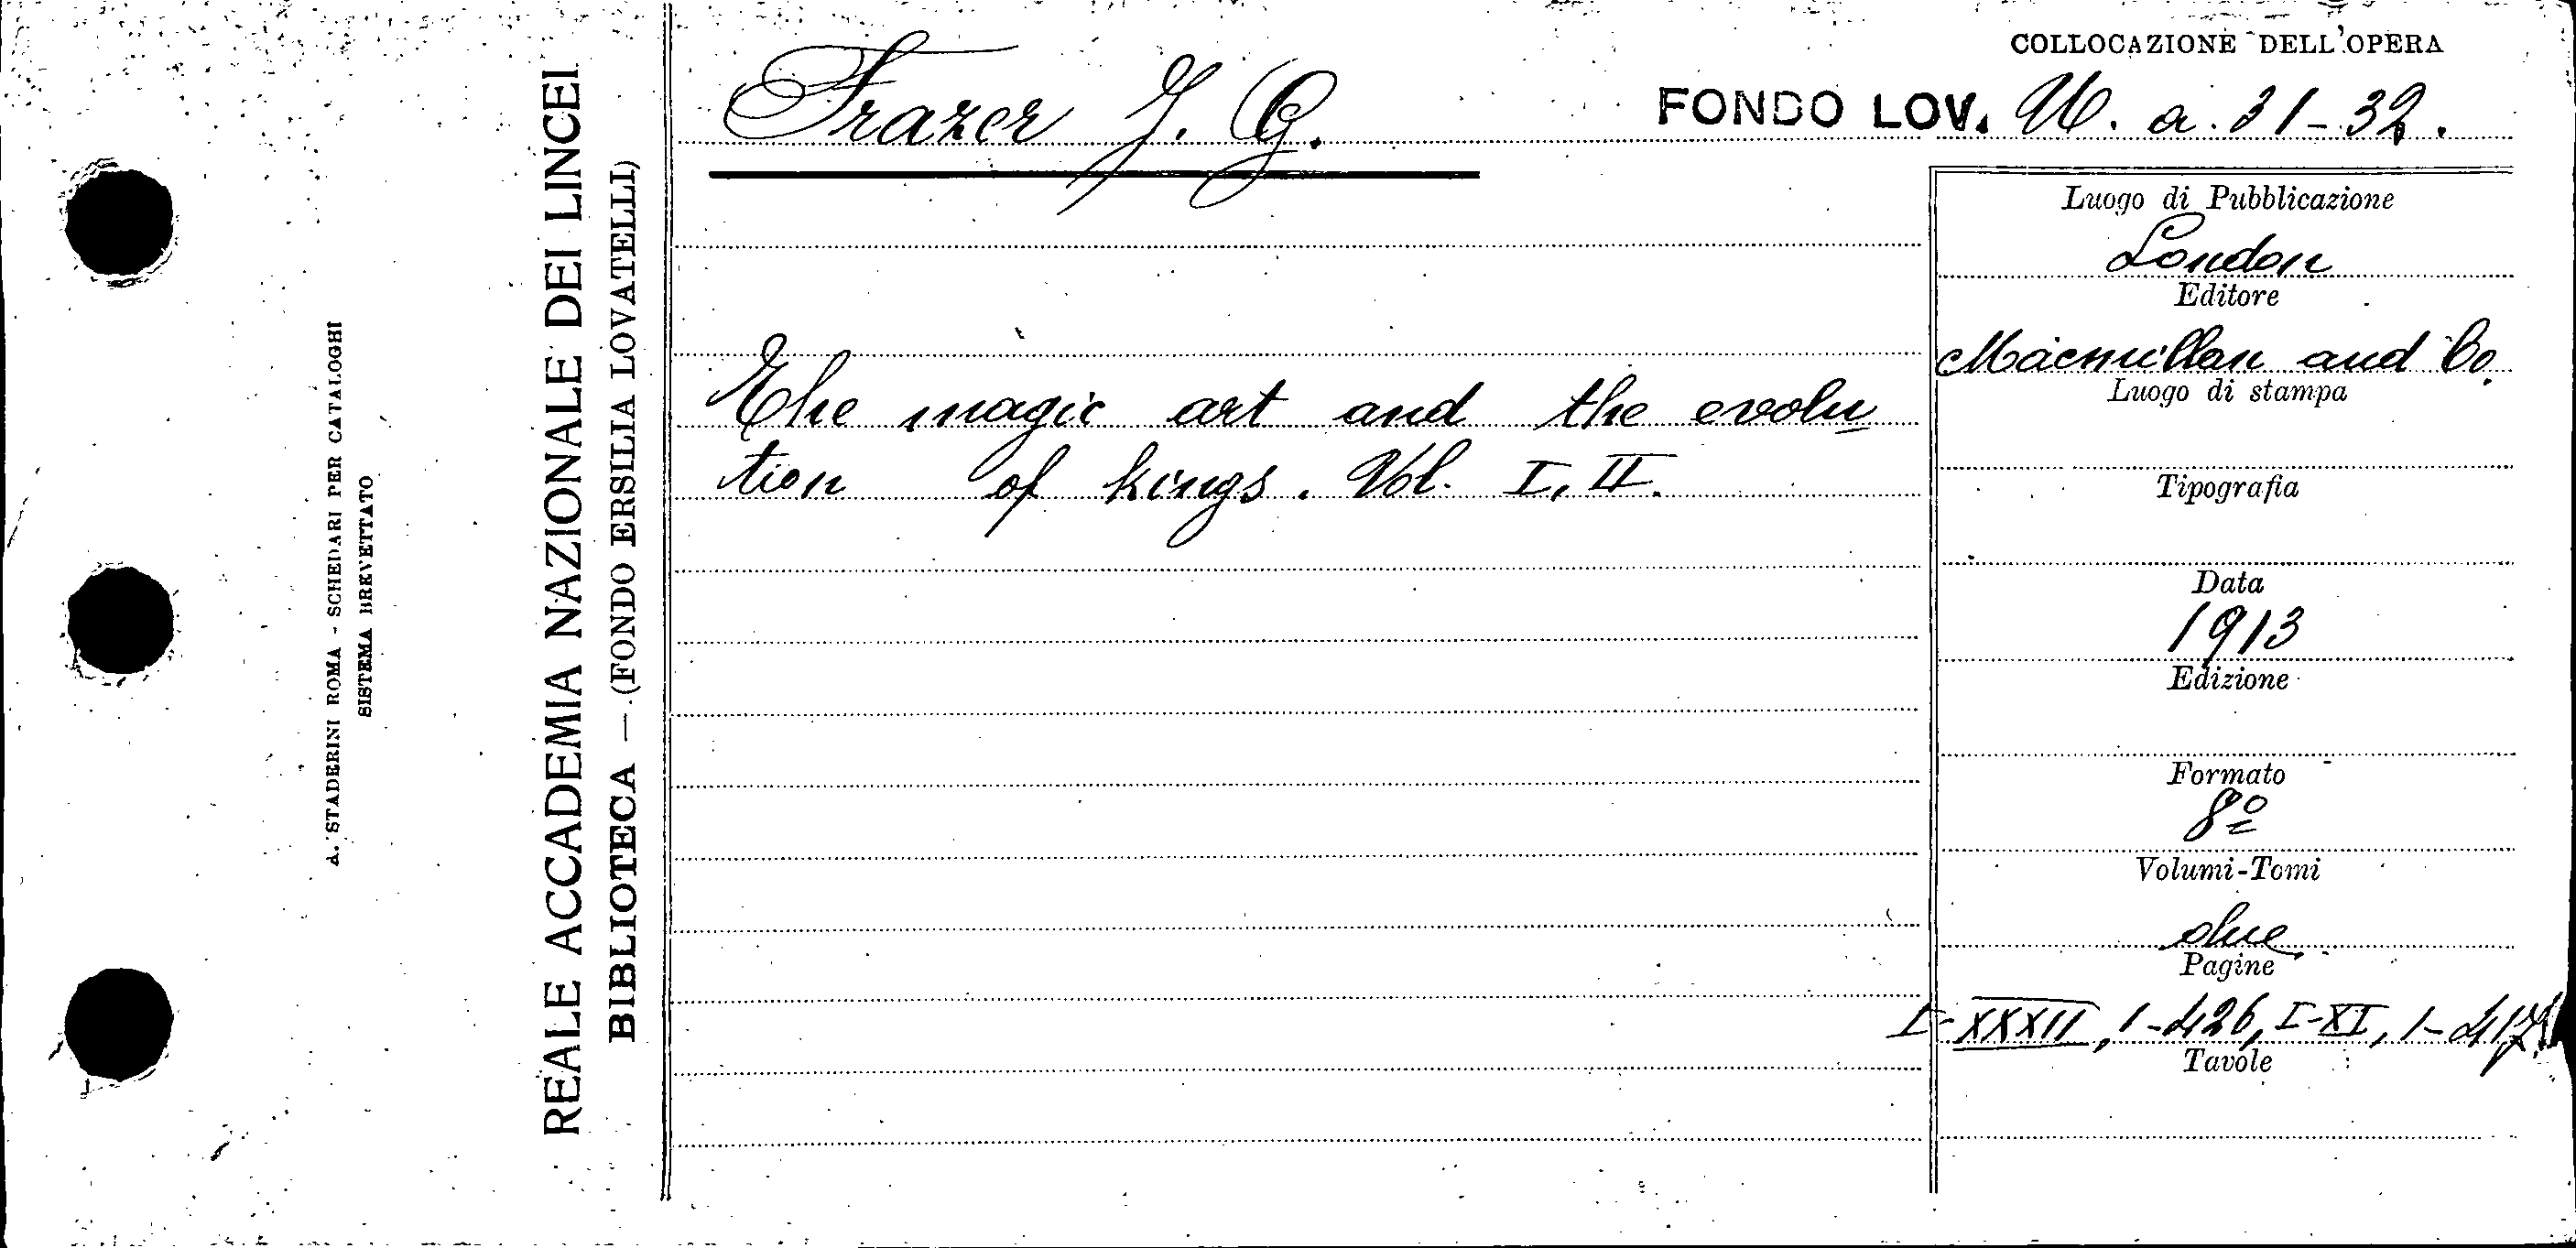 COLLOCAZIONE DELL'OPERA
Frazer J. G.
FONDO LOV. U. a. 31-32.
The magic art and the evolu
tion of kings. Vol. I, II.
Luogo di Pubblicazione
London
Editore
Macmillan and Co.
Luogo di stampa
Tipografia
Data
1913
Edizione
Formato
8º
Volumi-Tomi
due
Pagine
I-XXXII, 1-426, I-XI, 1-417
Tavole
REALE ACCADEMIA NAZIONALE DEI LINCEI
BIBLIOTECA — (FONDO ERSILIA LOVATELLI)
A. STADERINI ROMA - SCHEDARI PER CATALOGHI
SISTEMA BREVETTATO